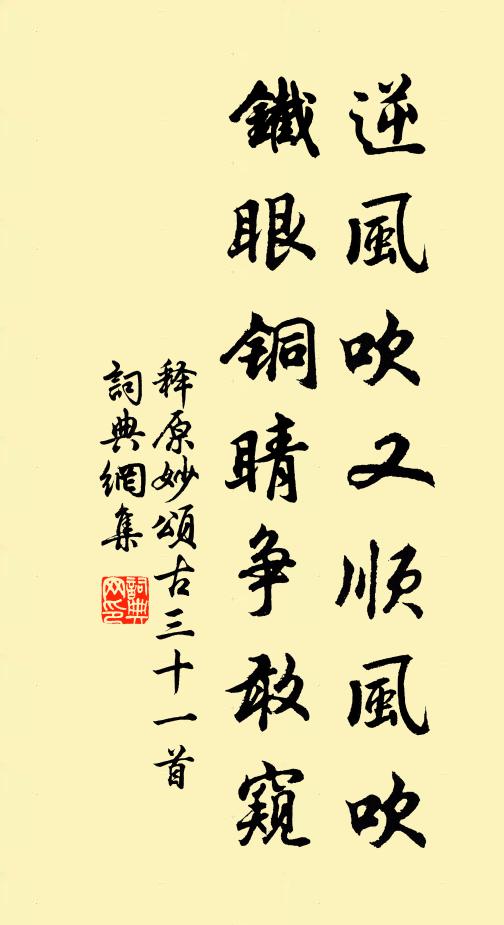 逆風吹又順風吹
鐵眼銅睛争敢窺
释原妙頌古三十一首
詞典網集
詞典網印